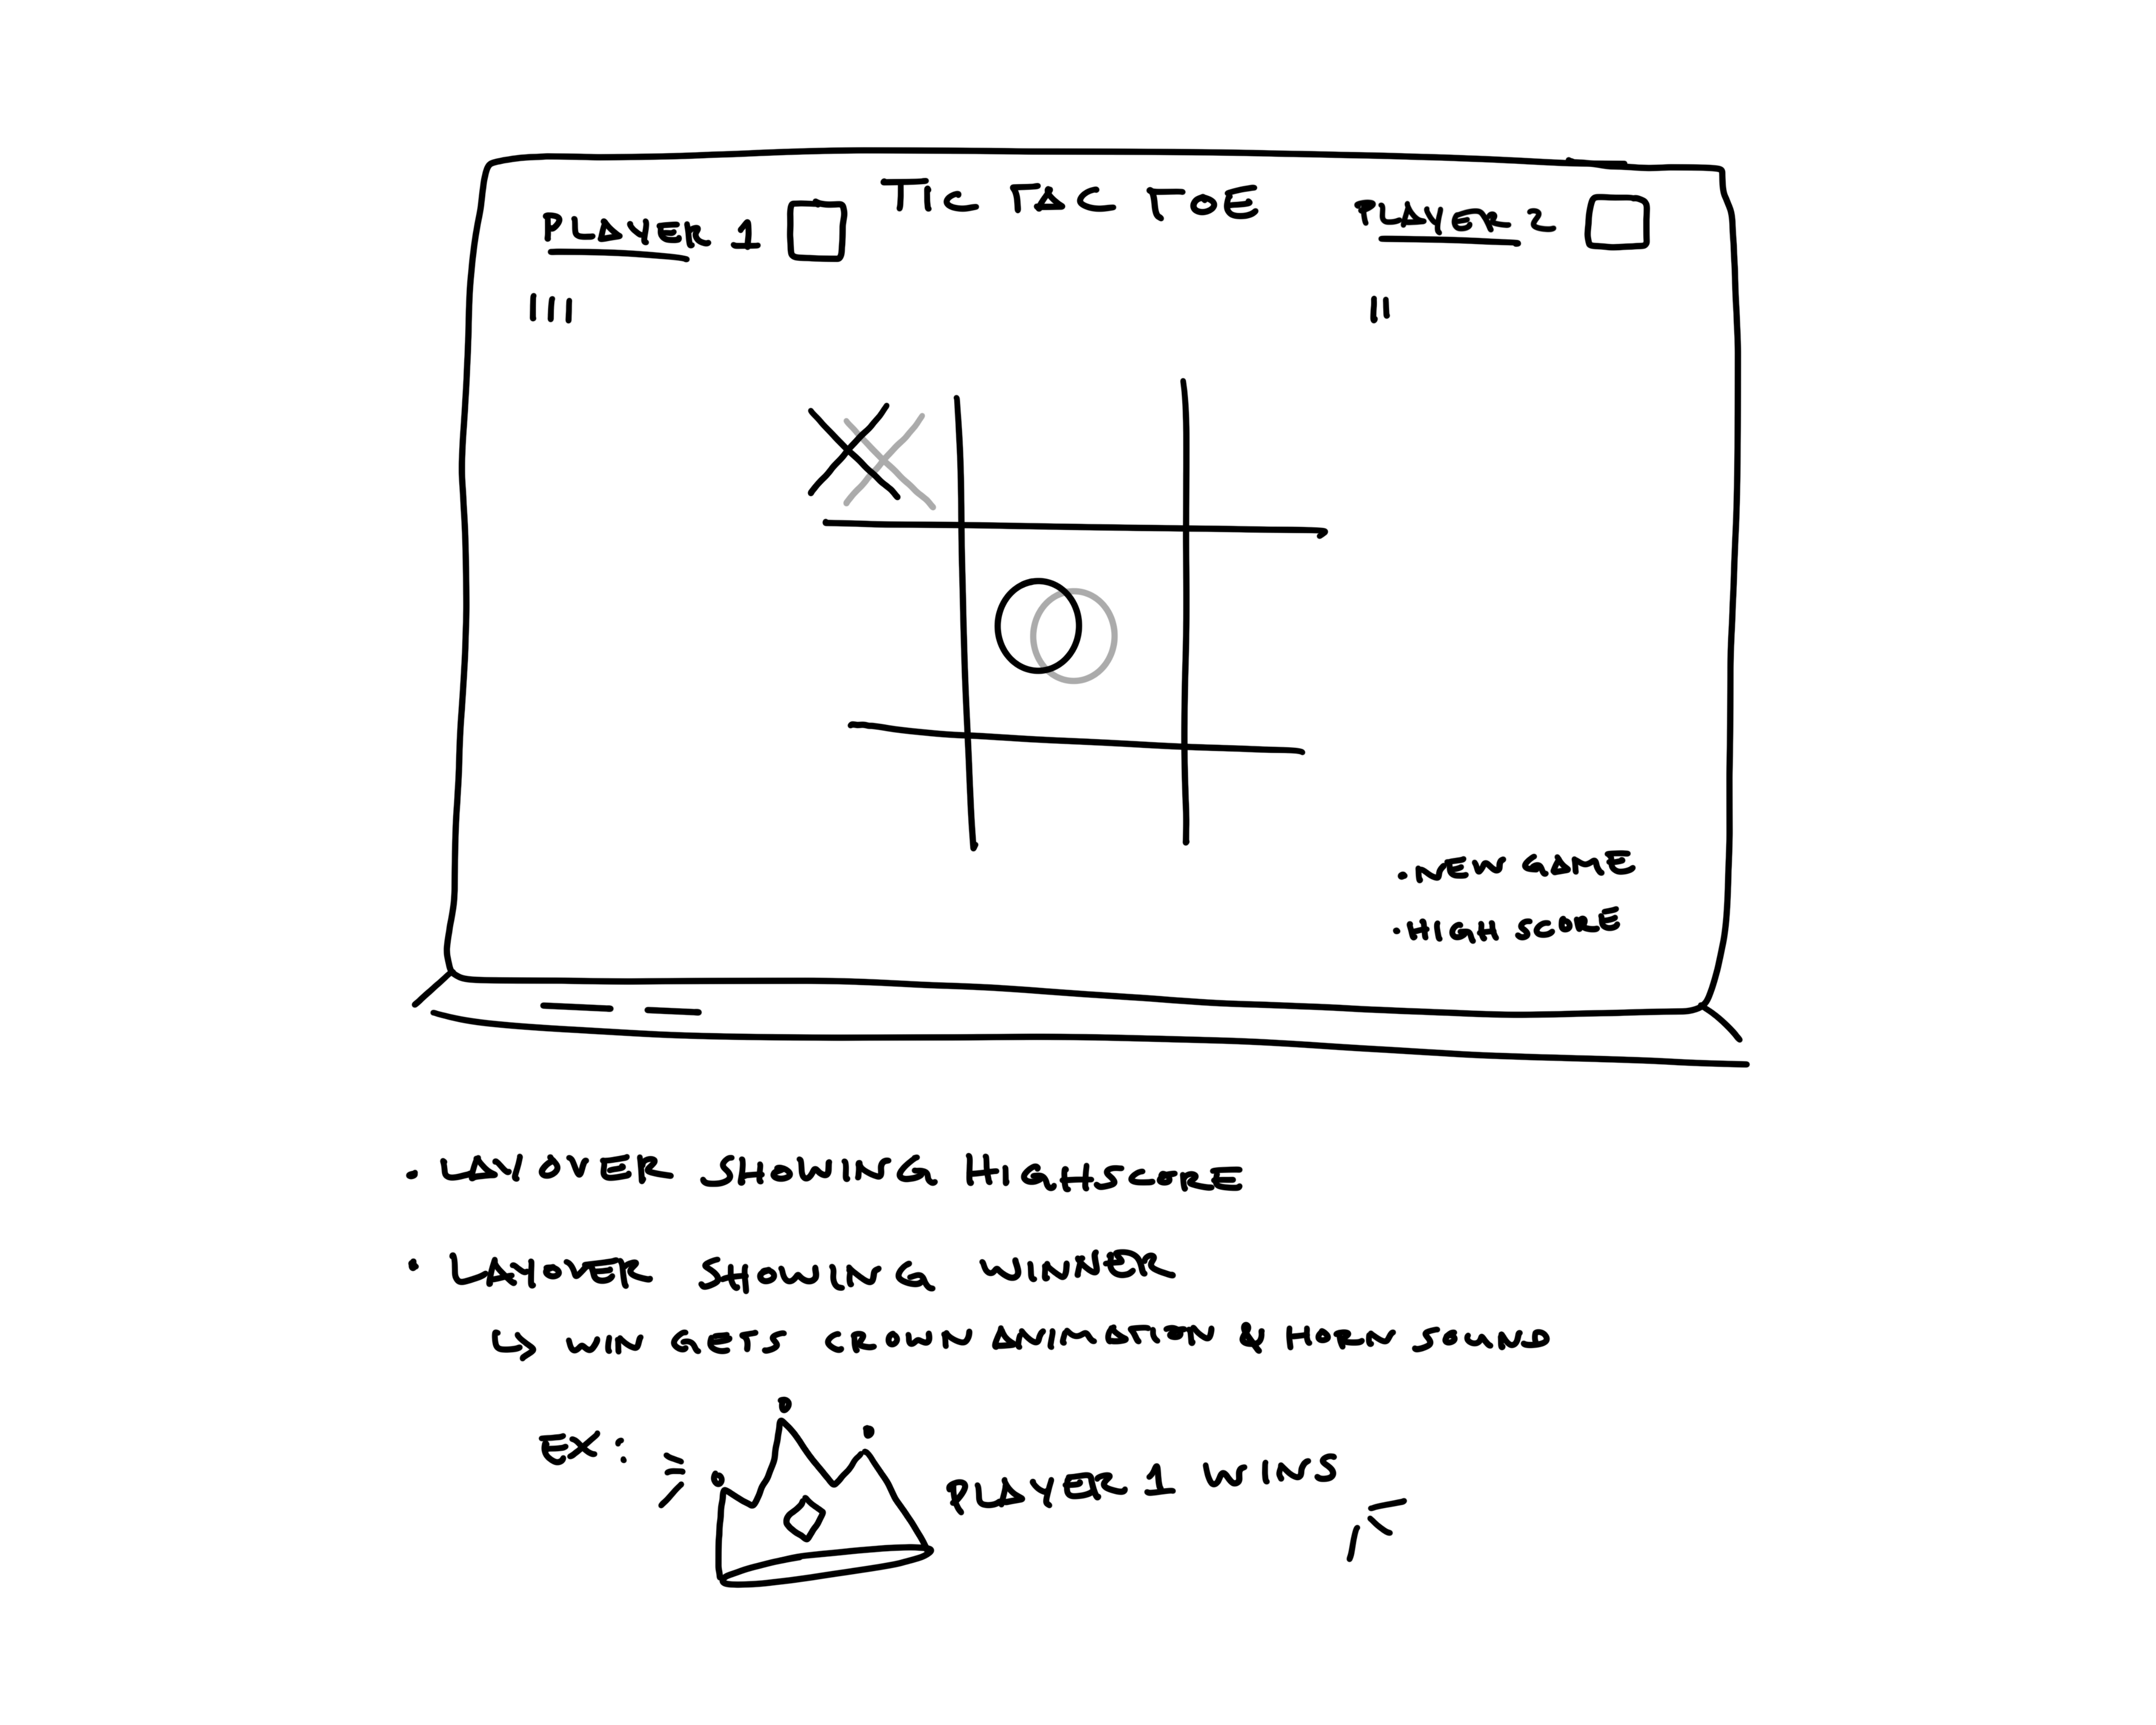 TIC TAC TOE
PLAYER 1
PLAYER 2
• NEW GAME
• HIGH SCORE
• LAYOVER SHOWING HIGHSCORE
• LAYOVER SHOWING WINNER
↳ WIN GETS CROWN ANIMATION & HORN SOUND
EX: PLAYER 1 WINS